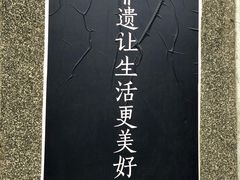 遗让生活更美好